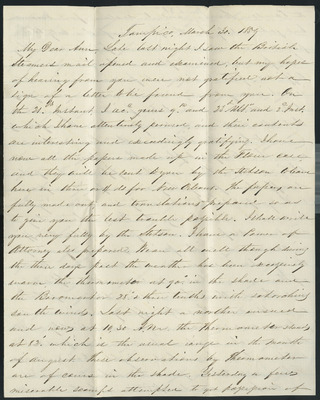 Tampico, March 30, 1859
My Dear Ann Late last night I saw the British
Steamers mail opened and examined, but my hope
of hearing from you were not gratified not a
sign of a letter to be found from you. On
the 21st Instant I rec'd yours 9th and 23d Ult and 3d Inst.
which I have attentively perused and their contents
are interesting and exceedingly gratifying. I have
now all the papers made up in the
and they will be sent to you by the to leave
here in their for New Orleans the papers are
fully made out, and translations prepared so as
to give you the least trouble possible. I shall write
you very fully by the I have a Power of
Attorney also prepared. We are all well though during
the three days past the weather has been
warm the thermometer at 90 in the shade and
the Barometer 29 tenths with
south winds. Last night a norther ensued
and now at 10.30 A.M. the Thermometer stands
at 82 which is the usual range in the month
of August these observations by Thermometer
are of course in the shade. Yesterday a few
miserable scamps attempted to get possession of